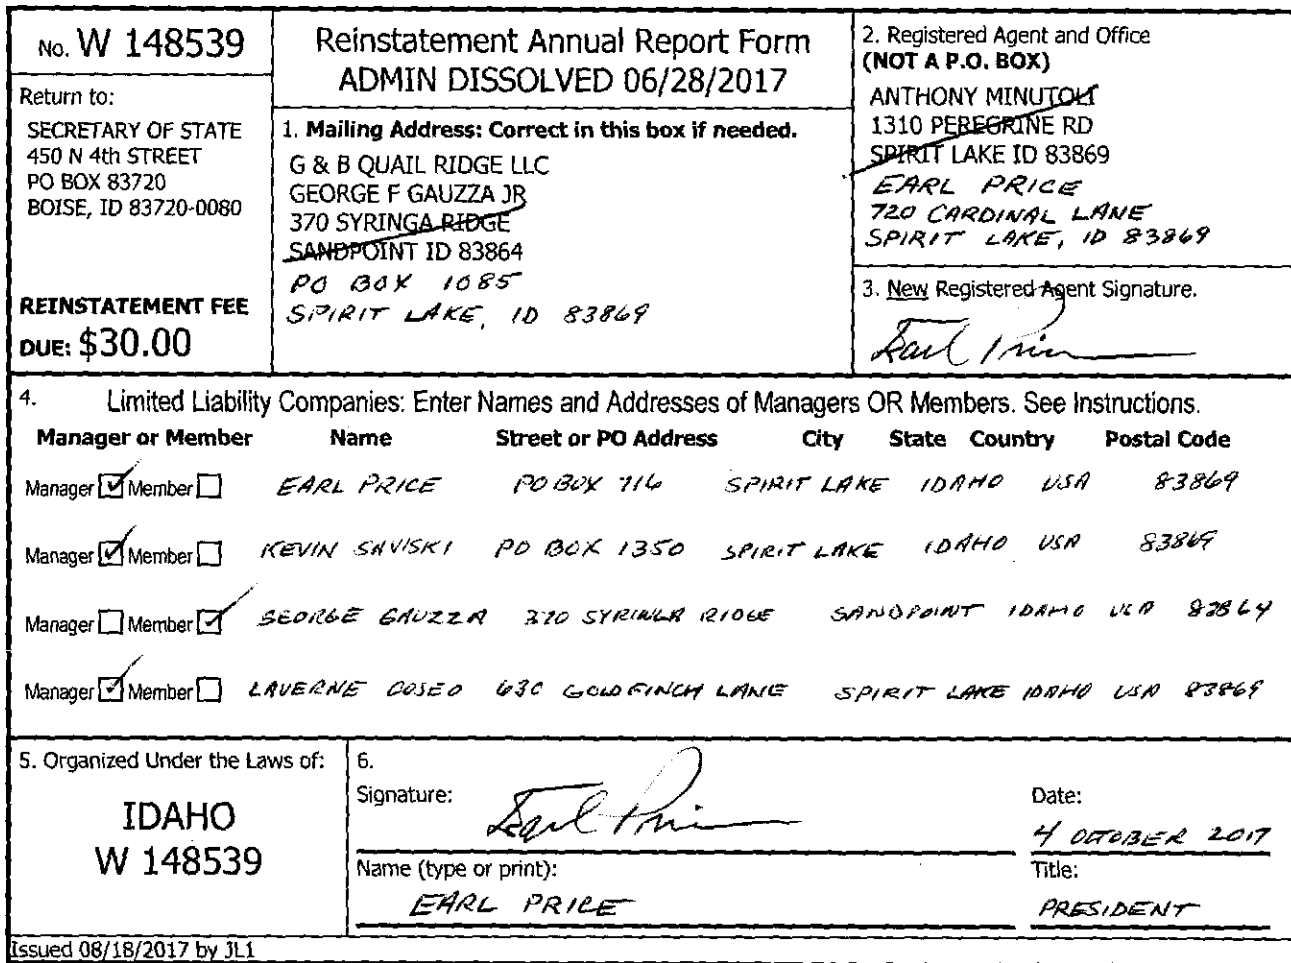 No. W 148539
Return to:
SECRETARY OF STATE
450 N 4th STREET
PO BOX 83720
BOISE, ID 83720-0080
REINSTATEMENT FEE
DUE: $30.00
Reinstatement Annual Report Form
ADMIN DISSOLVED 06/28/2017
1. Mailing Address: Correct in this box if needed.
G & B QUAIL RIDGE LLC
GEORGE F GAUZZA JR
370 SYRINGA RIDGE
SANDPOINT ID 83864
PO BOX 1085
SPIRIT LAKE, ID 83869
2. Registered Agent and Office
(NOT A P.O. BOX)
ANTHONY MINUTOLI
1310 PEREGRINE RD
SPIRIT LAKE ID 83869
EARL PRICE
720 CARDINAL LANE
SPIRIT LAKE, ID 83869
3. New Registered Agent Signature.
Earl Price
4. Limited Liability Companies: Enter Names and Addresses of Managers OR Members. See Instructions.
Manager or Member Name Street or PO Address City State Country Postal Code
Manager Member EARL PRICE PO BOX 716 SPIRIT LAKE IDAHO USA 83869
Manager Member KEVIN PO BOX 1350 SPIRIT LAKE IDAHO USA 83869
Manager Member GEORGE GAUZZA 370 SYRINGA RIDGE SANDPOINT IDAHO USA 83864
Manager Member LAVERNE COSEO 630 GOLDFINCH LANE SPIRIT LAKE IDAHO USA 83869
5. Organized Under the Laws of:
IDAHO
W 148539
6.
Signature: Earl Price
Date:
4 OCTOBER 2017
Name (type or print):
EARL PRICE
Title:
PRESIDENT
Issued 08/18/2017 by JL1